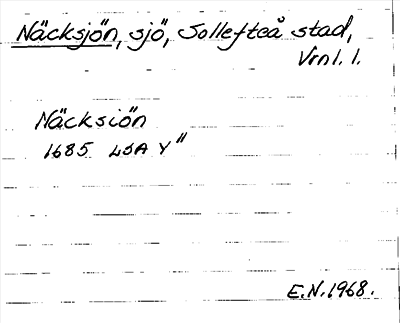 Näcksjön, sjö, Sollefteå stad,
Vrnl. l.
Näcksiön
1685 LSA Y"
E.N. 1968.